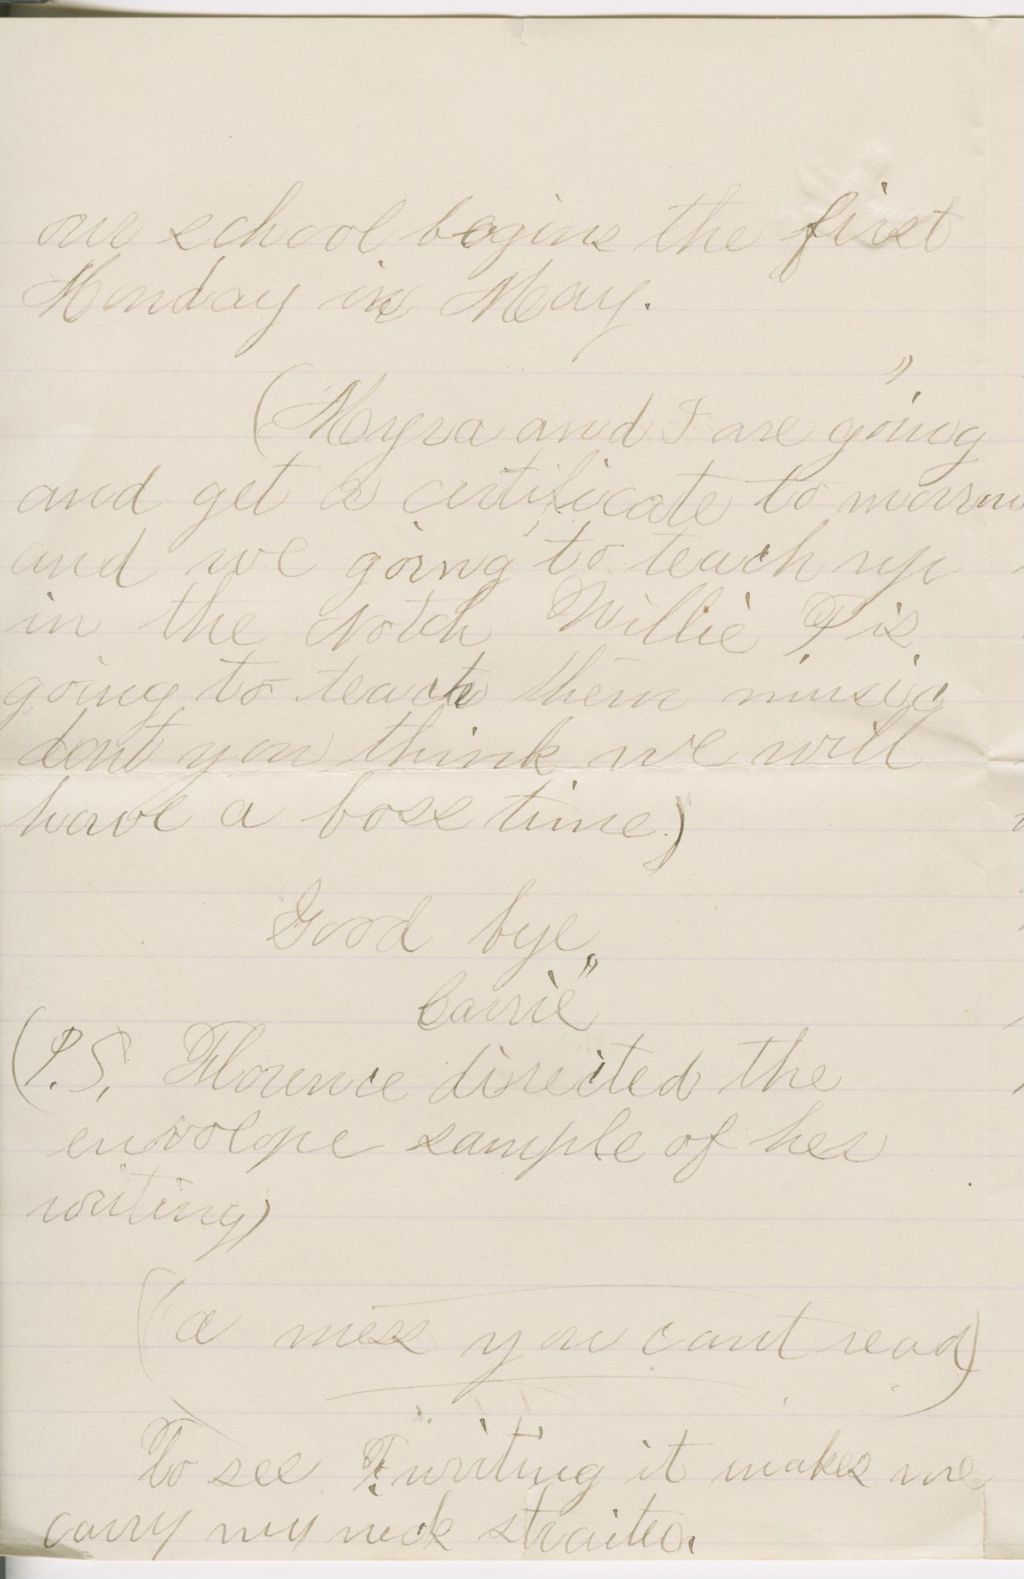 our school begins the first
Monday in May.
(Myra and I are going
and get a certificate to morrow
and we going to teach up
in the Notch Willie P is
going to teach them music
dont you think we will
have a boss time)
Good bye
Carrie"
(P.S. Florence directed the
envolope sample of her
writing)
(a mess you cant read)
To see F. writing it makes me
carry my neck straiter.